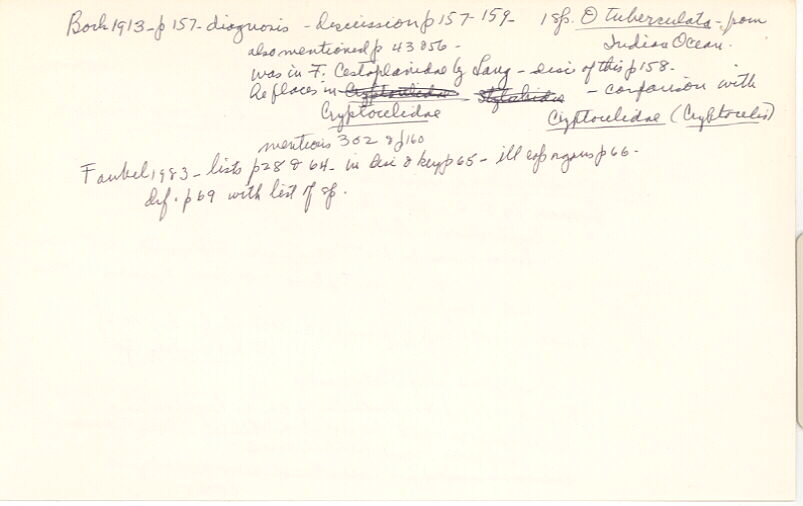 Bock 1913 - p 157 - diagnosis - discussion p 157-159 - 1 sp. O tuberculata - from
also mentioned p 43 & 56 - Indian Ocean.
was in F. Cestoplanidae by Lang - disc of this p 158 -
he places in - comparison with
Cryptocelidae Cryptocelidae (Cryptocelis)
mentions 302 & p 160
Faubel 1983 - lists p 28 & 64 - in disc & key p 65 - ill cop organs p 66 -
def. p 69 with list of sp.